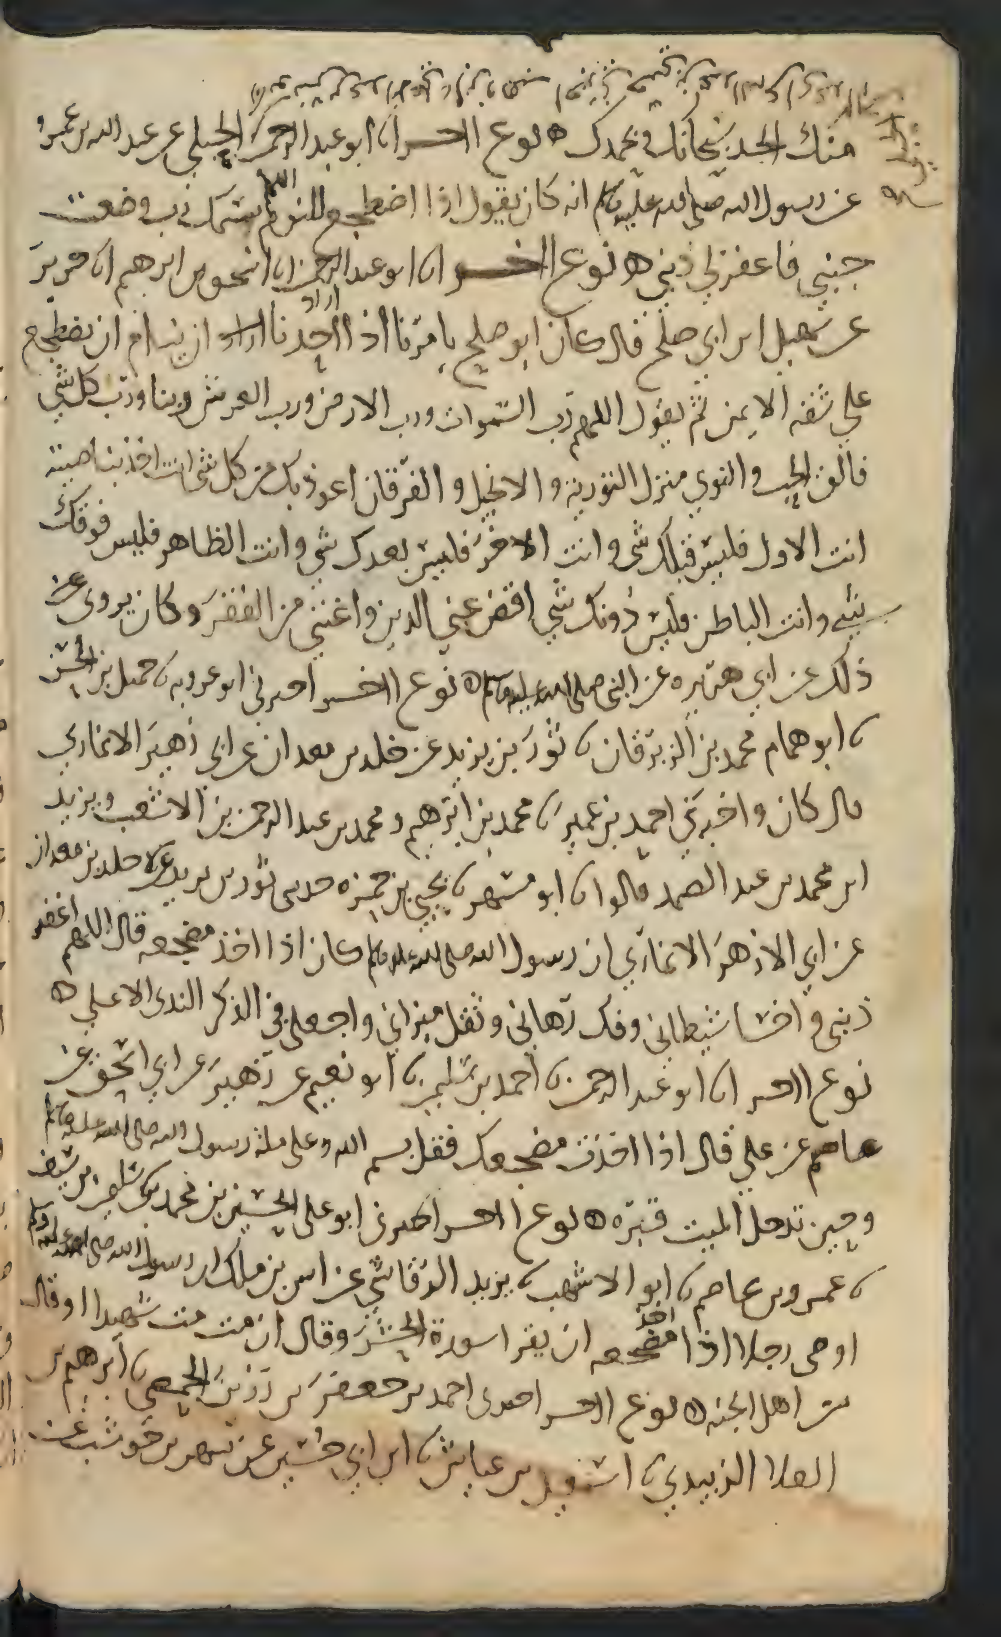 منك الجد سبحانك وبحمدك ه نوع اخر انا ابو عبد الرحمن الحبلي عن عبد الله بن عمرو
عن رسول الله صلى الله عليه وسلم انه كان يقول اذا اضطجع للنوم اللهم بسمك رب وضعت
جنبي فاغفر لي ذنبي ه نوع اخر انا ابو عبد الرحمن انا اسحق بن ابرهيم انا جرير
عن سهيل ابن ابي صلح قال كان ابو صلح يامرنا اذا اراد احدنا ان ينام ان يضطجع
على شقه الايمن ثم يقول اللهم رب السموات ورب الارض ورب العرش ربنا ورب كل شي
فالق الحب والنوى منزل التورية والانجيل والفرقان اعوذ بك من كل شي انت اخذ بناصيته
انت الاول فليس قبلك شي وانت الاخر فليس بعدك شي وانت الظاهر فليس فوقك
شي وانت الباطن فليس دونك شي اقض عني الدين واغنني من الفقر وكان يروى عن
ذلك عن ابي هريره عن النبي صلى الله عليه وسلم ه نوع اخر اخبرني ابو عروبه حميل بن الحسن
ابو همام محمد بن الزبرقان ثور بن يزيد عن خلد بن معدان عن ابي زهير الانماري
قال كان واخبرني احمد بن عمير محمد بن ابرهيم ومحمد بن عبد الرحمن بن الاشعب ويزيد
ابن محمد بن عبد الصمد قالوا ابو مسهر يحيى بن حمزه حدثني ثور بن يزيد عن خلد بن معدان
عن ابي الازهر الانماري ان رسول الله صلى الله عليه وسلم كان اذا اخذ مضجعه قال اللهم اغفر
ذنبي واخسا شيطاني وفك رهاني وثقل ميزاني واجعلني في الذكر الندى الاعلى ه
نوع اخر انا ابو عبد الرحمن احمد بن سليمن ابو نعيم عن زهير عن ابي اسحق عن
عاصم عن علي قال اذا اخذت مضجعك فقل بسم الله وعلى ملة رسول الله صلى الله عليه وسلم
وحين تدخل الميت قبره ه نوع اخر اخبرني ابو علي الحسين بن محمد سليمن بن سيف
عمرو بن عاصم ابو الاشهب يزيد الرقاشي عن انس بن ملك ان رسول الله صلى الله عليه وسلم
اوصى رجلا اذا اخذ مضجعه ان يقرا سورة الحشر وقال ان مت مت شهيدا او قال
من اهل الجنه ه نوع اخر اخبرني احمد بن جعفر بن رزين الحمصي ابرهيم بن
العلا الزبيدي اسمعيل بن عياش ابن ابي حسين عن شهر بن حوشب عن